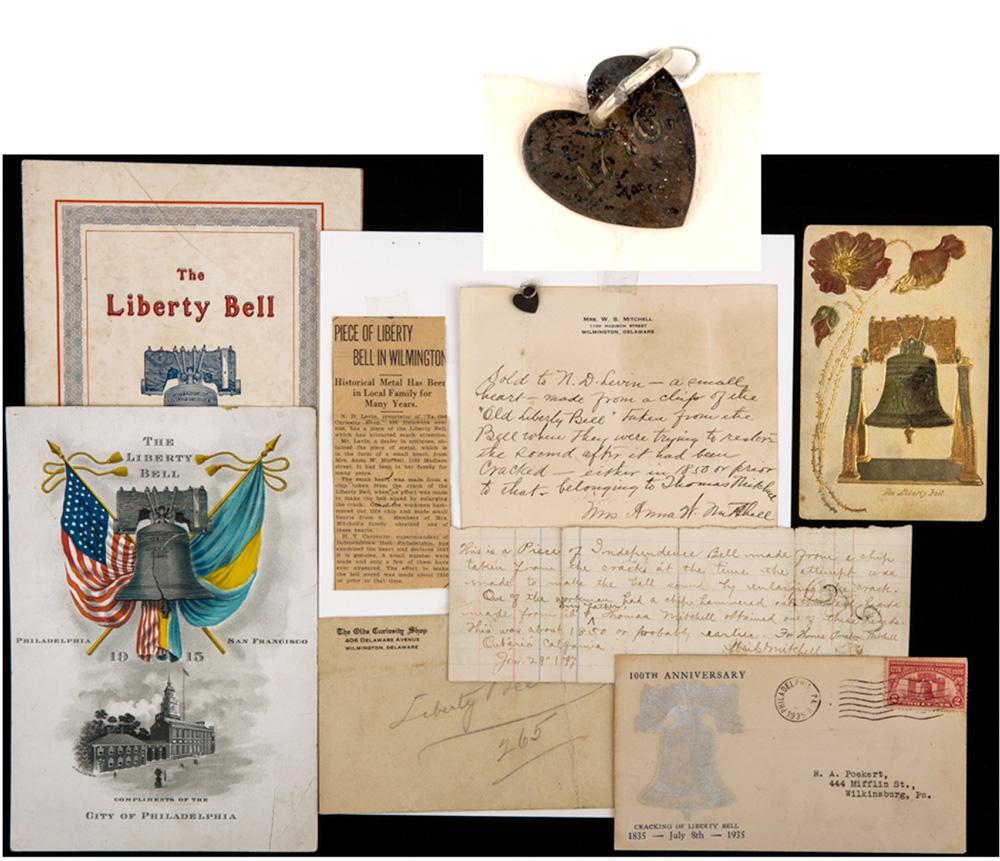 1776
The
Liberty Bell
THE
LIBERTY
BELL
PHILADELPHIA
SAN FRANCISCO
1915
COMPLIMENTS OF THE
CITY OF PHILADELPHIA
PIECE OF LIBERTY
BELL IN WILMINGTON
Historical Metal Has Been
in Local Family for
Many Years.
N. D. Levin, proprietor of "Ye Old
Curiosity Shop," 406 Delaware ave-
nue, has a piece of the Liberty Bell,
which has attracted much attention.
Mr. Levin, a dealer in antiques, ob-
tained the piece of metal, which is
in the form of a small heart, from
Mrs. Anna W. Mitchell, 1120 Madison
street. It had been in her family for
many years.
The small heart was made from a
chip taken from the crack of the
Liberty Bell, when an effort was made
to make the bell sound by enlarging
the crack. One of the workmen ham-
mered out this chip and made small
hearts from it. Members of Mrs.
Mitchell's family obtained one of
these hearts.
H. T. Carpenter, superintendent of
Independence Hall, Philadelphia, had
examined the heart and declares that
it is genuine. A small number were
made and only a few of them have
ever appeared. The effort to make
the bell sound was made about 1850
or prior to that time.
MRS. W. S. MITCHELL
MADISON STREET
WILMINGTON, DELAWARE
Sold to N. D. Levin — a small
heart — made from a chip of the
"Old Liberty Bell" taken from the
Bell when they were trying to restore
the sound after it had been
Cracked — either in 1850 or prior
to that — belonging to Thomas Mitchell
Mrs. Anna W. Mitchell
This is a Piece of Independence Bell made from a chip
taken from the crack at the time the attempt was
made to make the bell sound by enlarging the crack.
One of the workman had a chip hammered out
made from it my father, Thomas Mitchell obtained one of these
This was about 1850 or probably earlier. For Thomas Mitchell
Ontario California
Jan. 29" 1/97
Mitchell
The Olde Curiosity Shop
406 DELAWARE AVENUE
WILMINGTON, DELAWARE
Liberty Bell
265
The Liberty Bell
100TH ANNIVERSARY
PHILADELPHIA PA
1935
2
R. A. Poekert,
444 Mifflin St.,
Wilkinsburg, Pa.
CRACKING OF LIBERTY BELL
1835 — July 8th — 1935